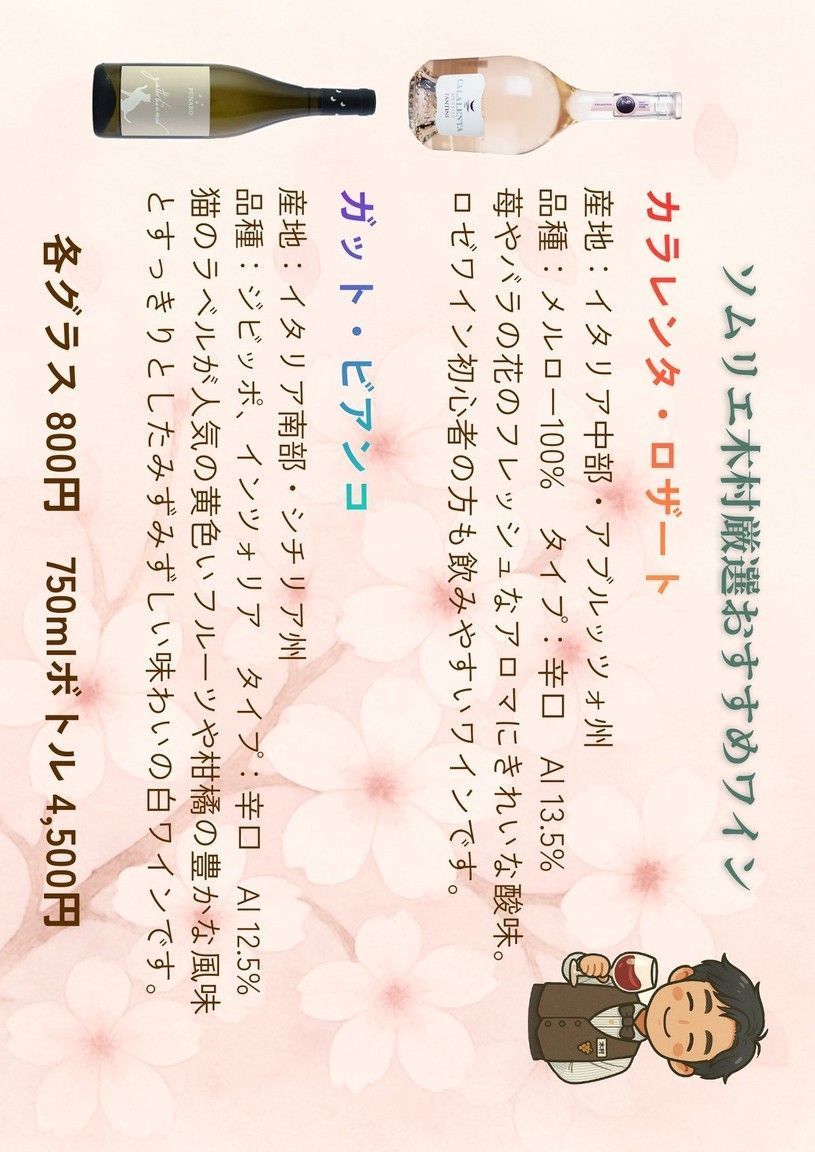 ソムリエ木村厳選おすすめワイン
カラレンタ・ロザート
産地：イタリア中部・アブルッツォ州
品種：メルロー100%　タイプ：辛口　Al 13.5%
苺やバラの花のフレッシュなアロマにきれいな酸味。
ロゼワイン初心者の方も飲みやすいワインです。
CALALENTA
FANTINI
ガット・ビアンコ
産地：イタリア南部・シチリア州
品種：ジビッボ、インツォリア　タイプ：辛口　Al 12.5%
猫のラベルが人気の黄色いフルーツや柑橘の豊かな風味
とすっきりとしたみずみずしい味わいの白ワインです。
FUNARO
各グラス 800円　750mlボトル 4,500円
木村